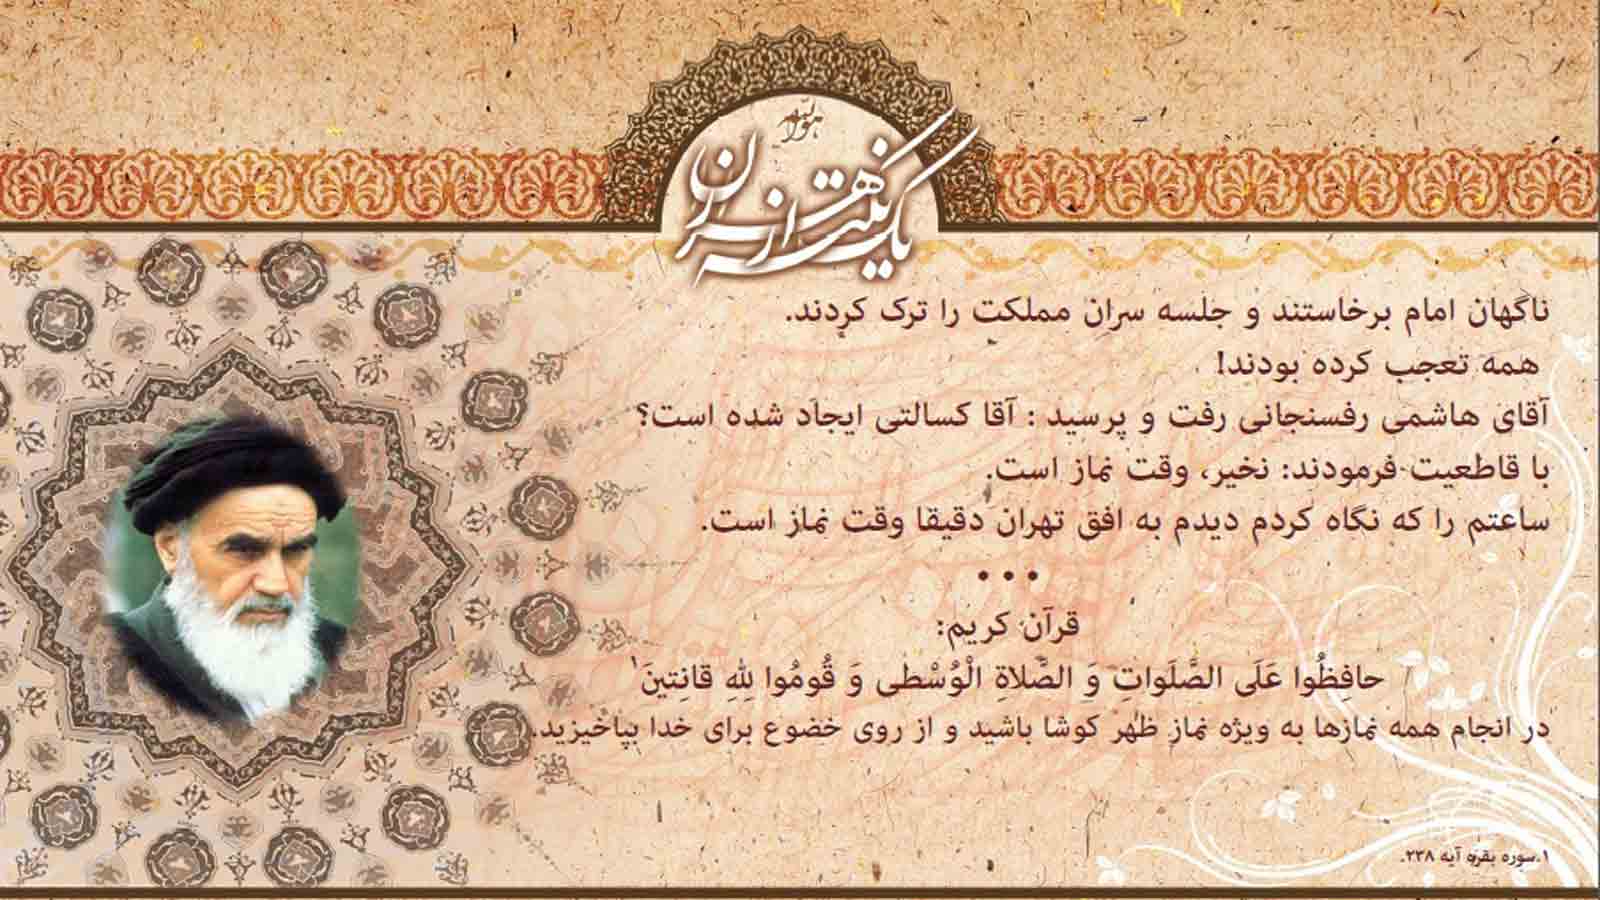 هو الله
یک نکته از هزاران
ناگهان امام برخاستند و جلسه سران مملکت را ترک کردند.
همه تعجب کرده بودند!
آقای هاشمی رفسنجانی رفت و پرسید : آقا کسالتی ایجاد شده است؟
با قاطعیت فرمودند: نخیر، وقت نماز است.
ساعتم را که نگاه کردم دیدم به افق تهران دقیقا وقت نماز است.
•••
قرآن کریم:
حافِظُوا عَلَی الصَّلَواتِ وَ الصَّلاةِ الْوُسْطی وَ قُومُوا لِلهِ قانِتینَ۱
در انجام همه نمازها به ویژه نماز ظهر کوشا باشید و از روی خضوع برای خدا بپاخیزید.
۱.سوره بقره آیه ۲۳۸.